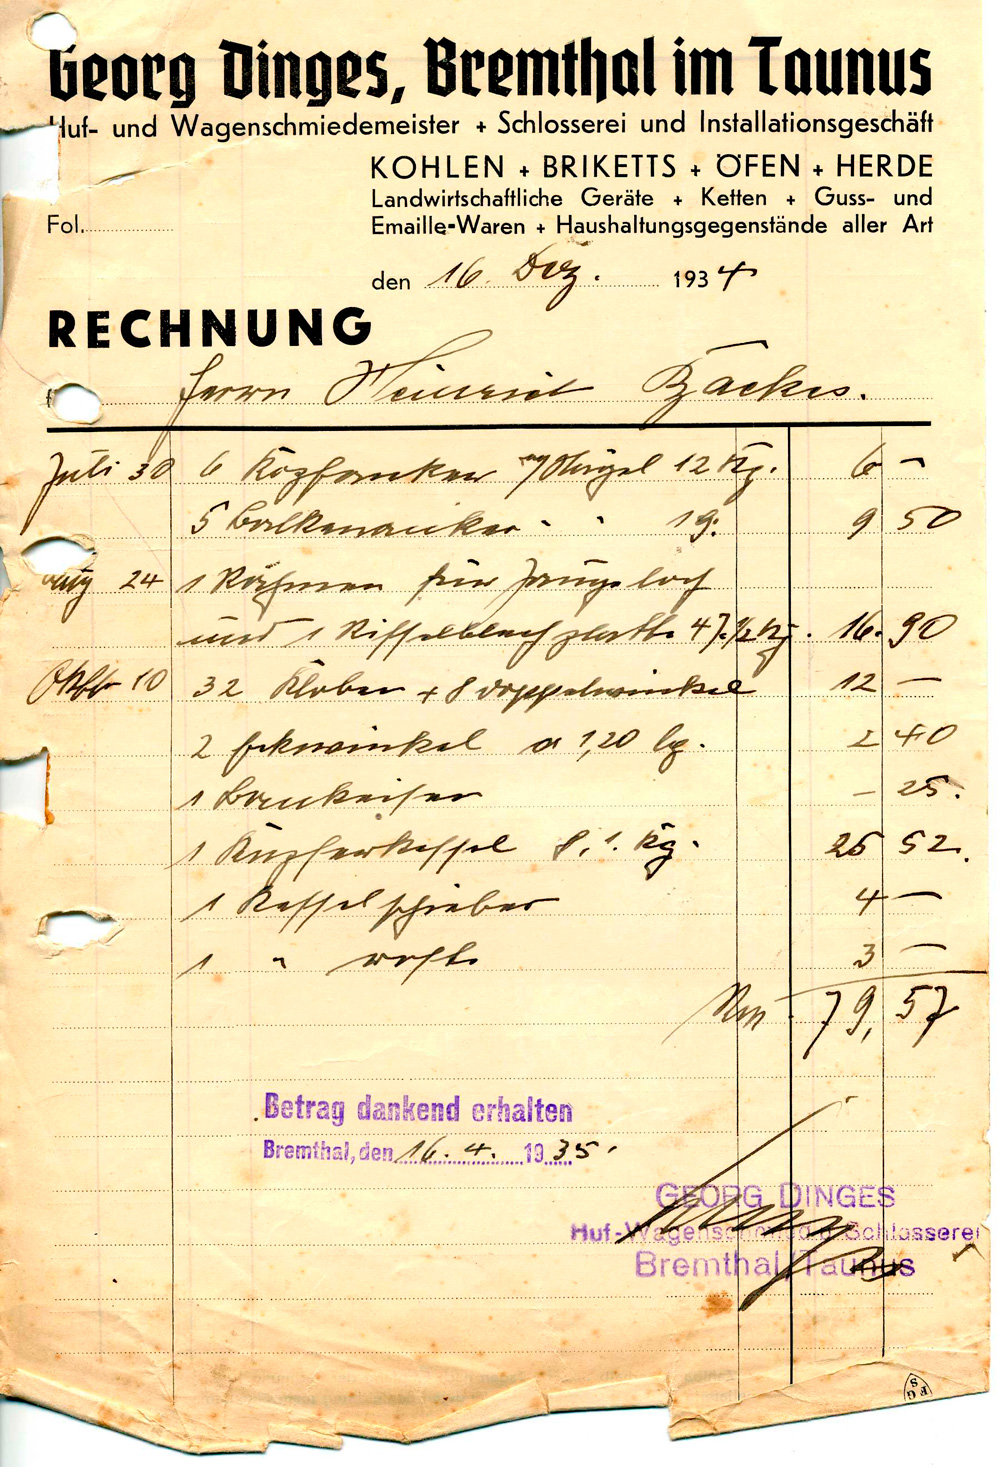 Georg Dinges, Bremthal im Taunus
Huf- und Wagenschmiedemeister + Schlosserei und Installationsgeschäft
KOHLEN + BRIKETTS + ÖFEN + HERDE
Landwirtschaftliche Geräte + Ketten + Guss- und
Fol.
Emaille-Waren + Haushaltungsgegenstände aller Art
den 16. Dez. 1934
RECHNUNG
Herrn Heinrich Backes.
Juli 30 6 Kopfanker 12 Kg. 6 —
5 Balkenanker " " 19. 9 50
Aug 24 1 Rahmen für
und 1 Riffelblechplatte 47.½ Kg. 16. 90
Oktb 10 32 Kloben + 8 Doppelwinkel 12 —
2 Eckwinkel a 1,20 2 40
1 — 25.
1 Kupferkessel 8,1. Kg. 25 52.
1 Kesselschieber 4 —
1 " 3 —
Rm 79,57
Betrag dankend erhalten
Bremthal, den 16. 4. 1935.
GEORG DINGES
Huf-Wagenschmied u. Schlosserei
Bremthal/Taunus
S
FG